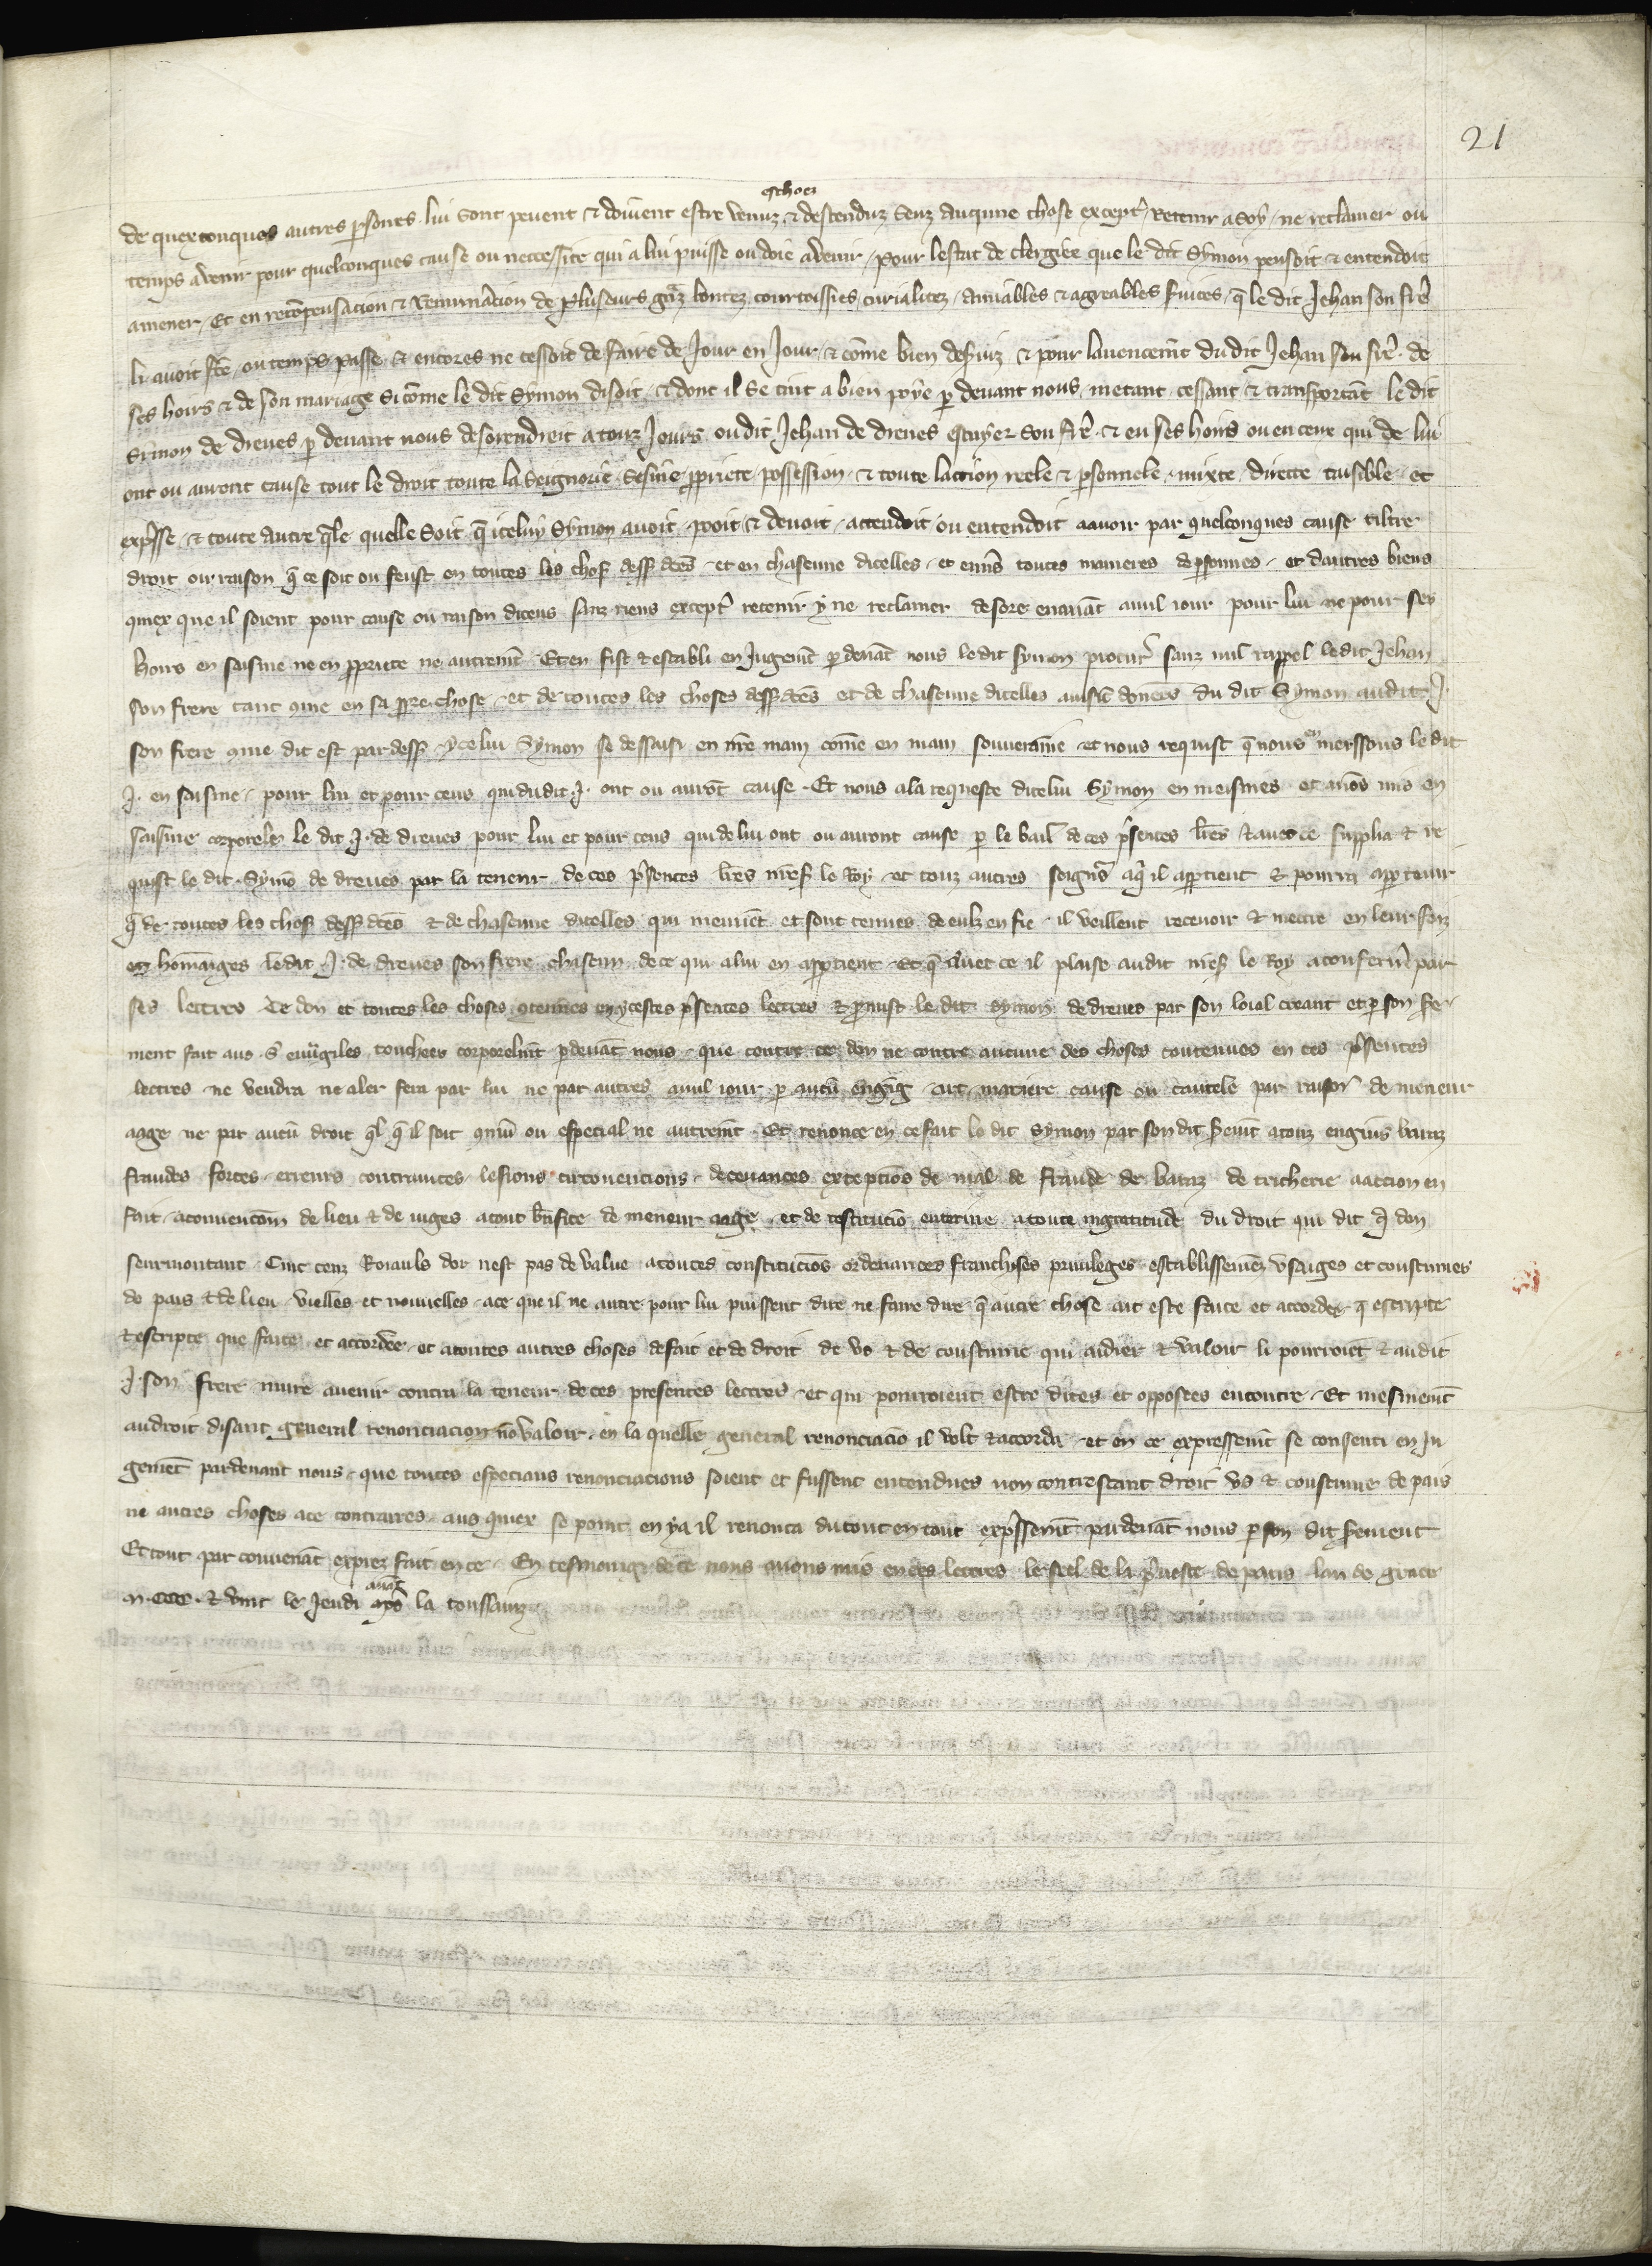 21
eschoez
de quexconques autres persones lui sont pevent & doivent estre venuz & destenduz senz aucune chose excepter retenir a soy ne reclamer ou
temps avenir pour quelconques cause ou neccessite qui a lui puisse ou doie avenir pour lestat de clergiee que le dit Symon pensoit & entendoit
amener Et en recõpensacion & remuneracion de pluseurs granz bontez courtoisies curialitez amiables & agreables services q̃ le dit Jehan son frere
li avoit fet ou temps passe & encores ne cessoit de faire de Jour en Jour & cõme bien deserviz & pour lavencemẽt du dit Jehan son frere de
ses hoirs & de son mariage si cõme le dit Symon disoit & dont il se tint a bien poye p devant nous metant cessant & transportãt le dit
Symon de dreues p devant nous desorendroit a touz Jours ou dit Jehan de dreues escuyer son frere & en ses hoirs ou en ceux qui de lui
ont ou auront cause tout le droit toute la seignorie sesine ppriete possession & toute laction reele & psonnele mixte directe taisible et
exp̃sse & toute autre q̃le quelle soit q̃ iceluy Symon avoit povoit & devoit attendoit ou entendoit a avoir par quelconques cause tiltre
droit ou raison q̃ ce soit ou feust en toutes les choses dess dc̃es et en chascune dicelles et envs̃ toutes manieres de psonnes et dautres biens
quex que il soient pour cause ou raison diceus sanz riens excepter retenir y ne reclamer desore enavãt a nul iour pour lui ne pour ses
hoirs en saisine ne en ppriete ne autremẽt Et en fist & establi en Jugemẽt p devãt nous le dit Symon procur̃ sanz nul rappel le dit Jehan
son frere tant cõme en sa ppre chose et de toutes les choses dess dc̃es et de chascune dicelles ausi donees du dit Symon audit J.
son frere cõme dit est par dess ycelui Symon se dessaisi en nr̃e main cõme en main souveraine et nous requist q̃ nous en meissons le dit
J. en saisine pour lui et pour ceus qui dudit J. ont ou aurõt cause Et nous a la requeste dicelui Symon en meismes et avõs mis en
saisine corporele le dit J. de dreues pour lui et pour ceus qui de lui ont ou auront cause p le bail de ces p̃sentes lr̃es & avec ce supplia & re
quist le dit Symõ de dreues par la teneur de ces p̃sentes lr̃es mess̃ le Roy et touz autres seign̄s a q̃ il apptient & pourra apptenir
q̃ de toutes les choses dess dc̃es & de chascune dicelles qui meuvẽt et sont tenues de eulz en fie il veillent recevoir & mettre en leur foiz
en hõmaiges le dit J. de dreues son frere chascun de ce qui a lui en apptient Et q̃ avec ce il plaise audit mess̃ le Roy a confermer par
ses lettres Ce don et toutes les choses contenues en ycestes p̃sentes lettres & pmist le dit Symon de dreues par son loial creant et p son sere
ment fait aus s̃ euvãgiles touchees corporelmẽt p devãt nous que contre ce don ne contre aucune des choses contenues en ces p̃sentes
lectres ne vendra ne aler fera par lui ne par autres a nul iour p aucũ engig art matiere cause ou cautele par raison de meneur
aage ne par aucũ droit q̃l q̃ il soit cõmũ ou especial ne autremẽt Et renonce en ce fait le dit Symon par son dit sermẽt a touz engins baraz
fraudes forces erreurs contraintes lesions circonvencions decevances excepciõs de mal de fraude de baraz de tricherie a accion en
fait a convencõm de lieu & de iuges a tout bñfice de meneur aage et de restituciõ enterine a toute ingratitude du droit qui dit q̃ don
seurmontant Cinc cenz Roiauls dor nest pas de value a toutes constituciõs ordenances franchises privileges establissemẽz usaiges et coustumes
de pais & de lieu vielles et nouvelles a ce que il ne autre pour lui puissent dire ne faire dire q̃ autre chose ait este faite et accordee q̃ escripte
& escripte que faite et accordee et a toutes autres choses de fait et de droit de us & de coustume qui aidier & valoir li pourroiẽt & audit
J. son frere nuire avenir contre la teneur de ces presentes lettres et qui pourroient estre dites et opposees encontre Et mesmemẽt
au droit disant general renonciacion nõ valoir en la quelle general renonciaciõ il volt & accorda et en ce expressemẽt se consenti en Ju
gemẽt par devant nous que toutes especiaus renonciacions soient et fussent entendues non contrestant droit us & coustume de pais
ne autres choses a ce contraires aus quiex se point en ya il renonca du tout en tout exp̃ssemẽt par devãt nous p son dit serement
Et tout par convenãt exprez fait en ce En tesmoing de ce nous avons mis en ces lettres le seel de la p̃voste de paris lan de grace
avãt
m. ccc. & vint le Jeudi ap̃s la toussainz